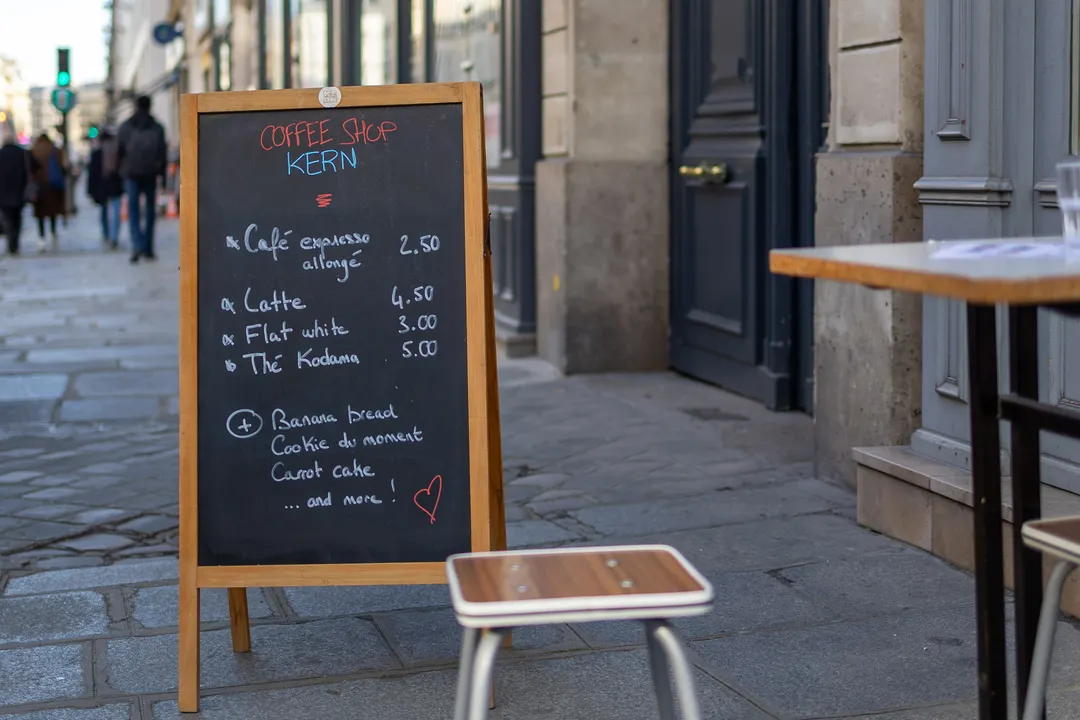 COFFEE SHOP
KERN
Café expresso 2.50
allongé
Latte 4.50
Flat white 3.00
Thé Kodama 5.00
+ Banana bread
Cookie du moment
Carrot cake
... and more !